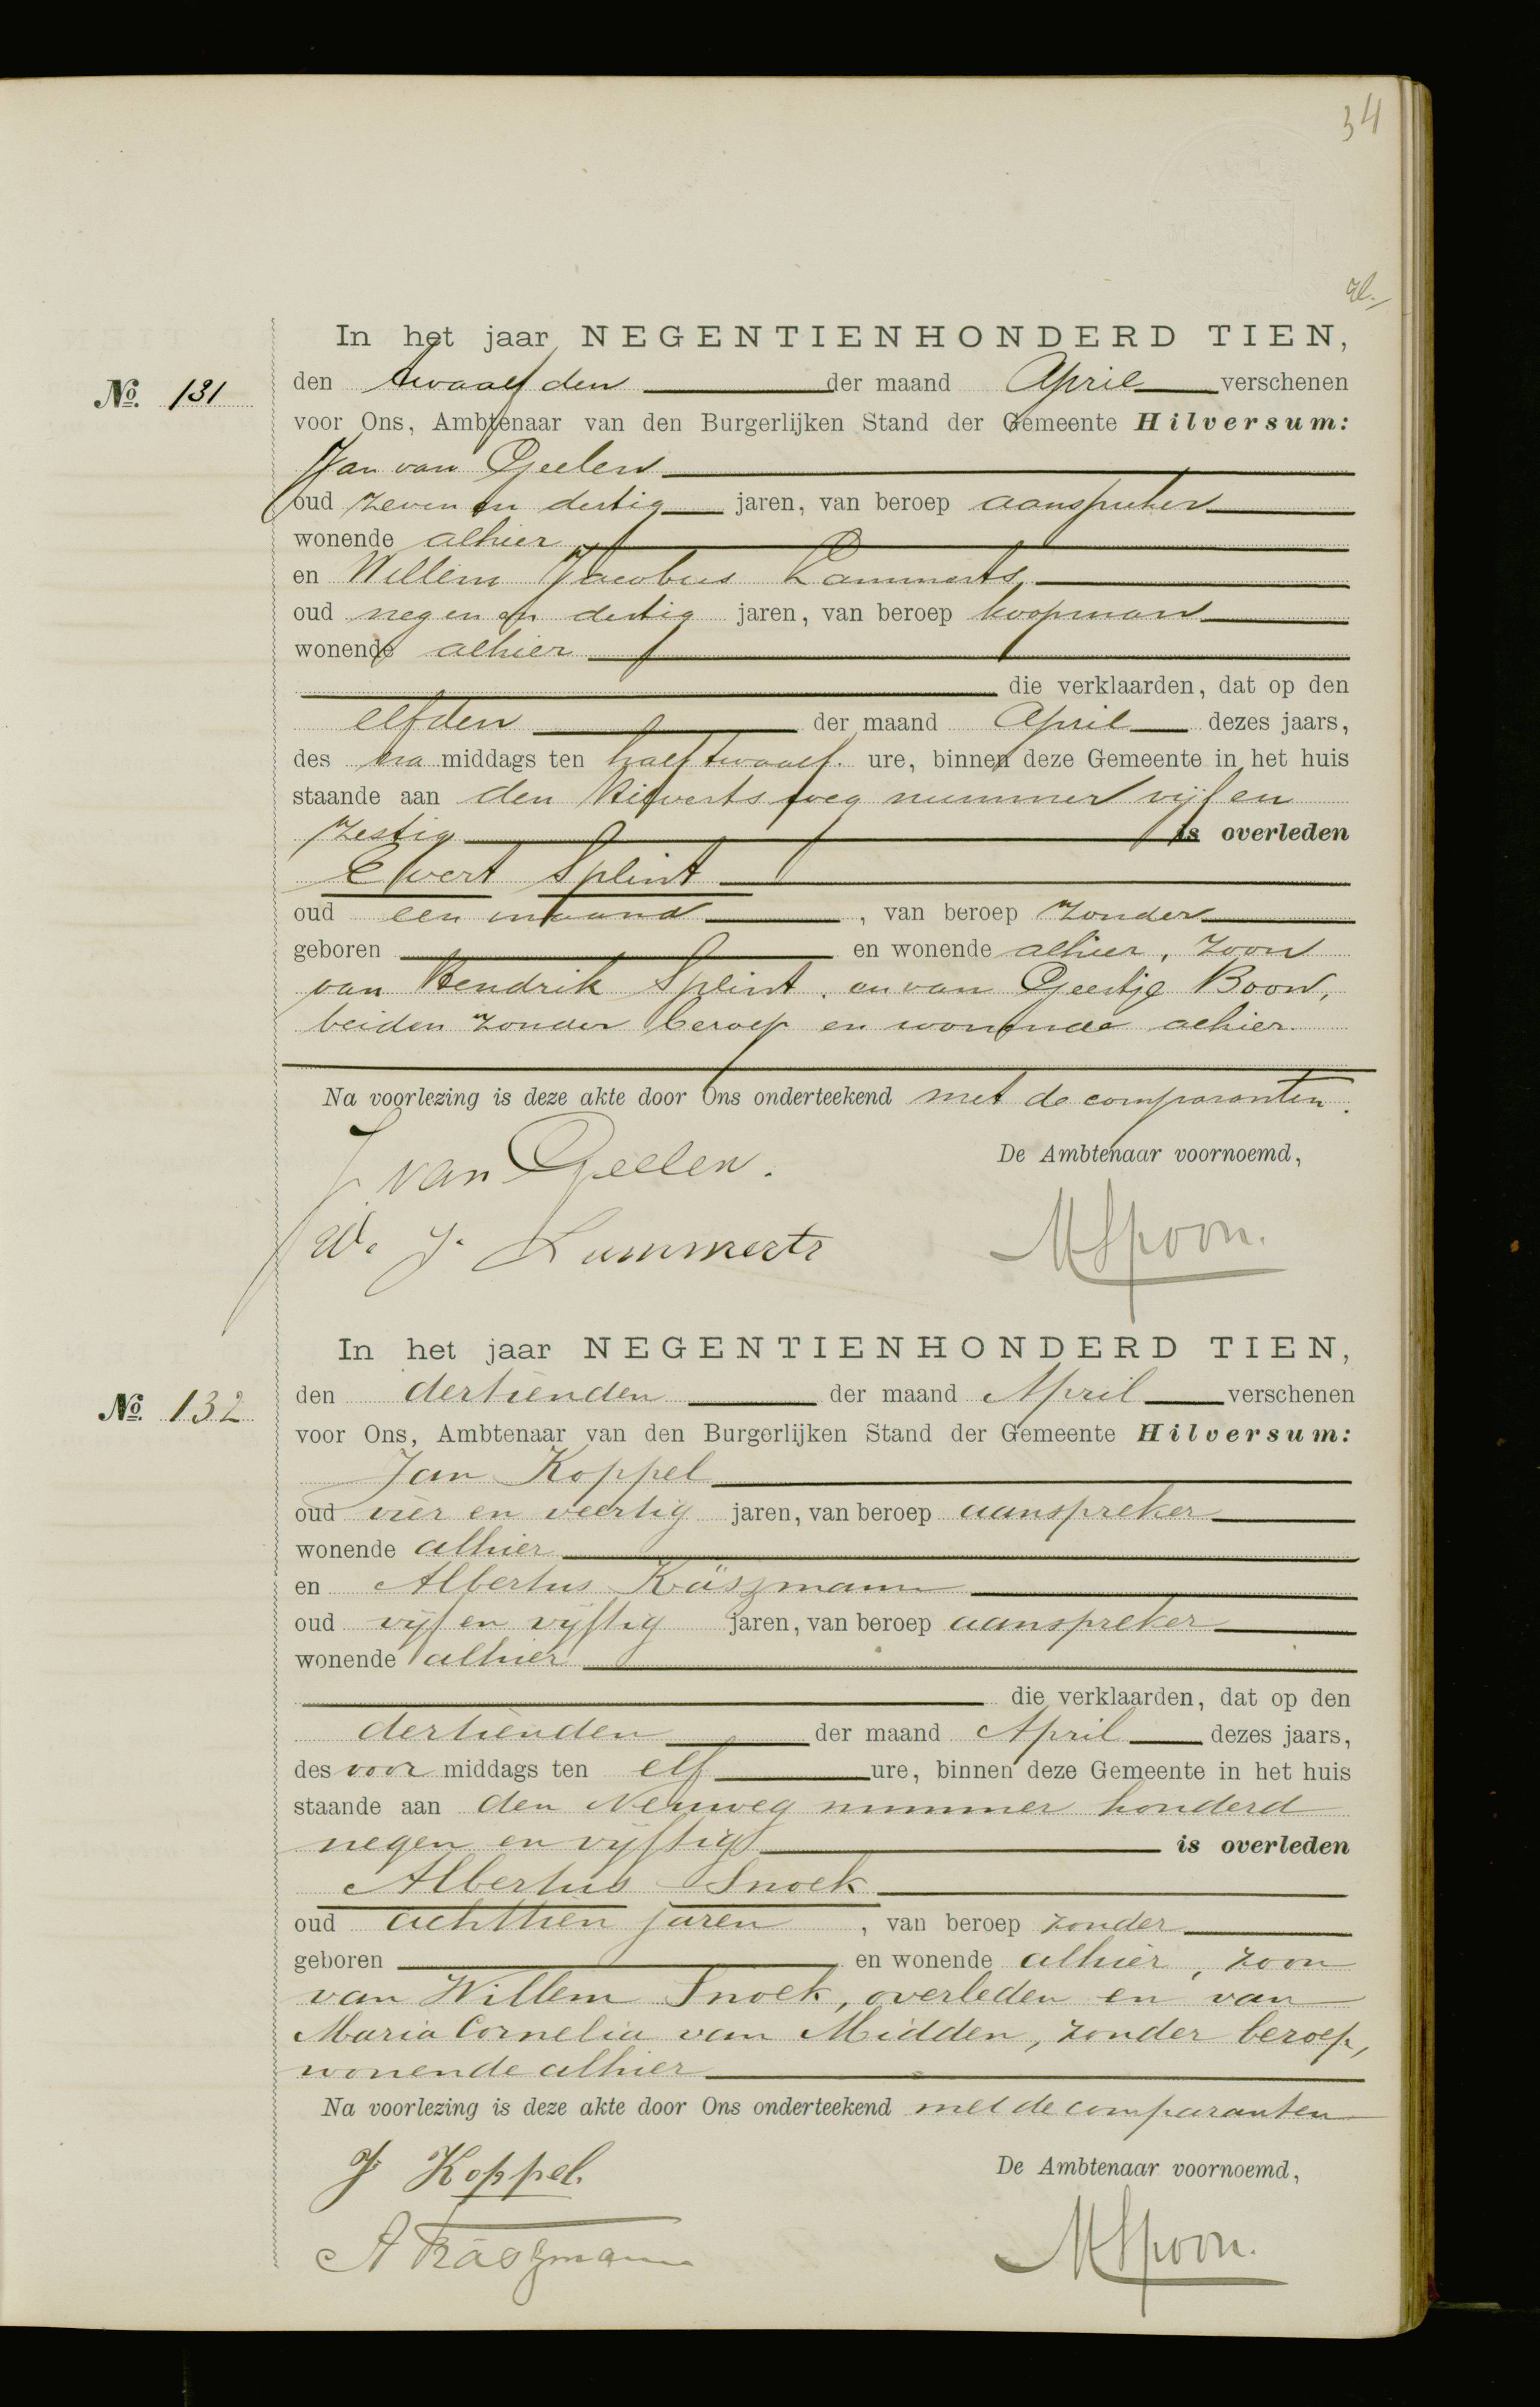 34
No. 131
In het jaar NEGENTIENHONDERD TIEN,
den twaalfden der maand April verschenen
voor Ons, Ambtenaar van den Burgerlijken Stand der Gemeente Hilversum:
Jan van Geelen
oud zeven en dertig jaren, van beroep aanspreker
wonende alhier
en Willem Jacobus Lammerts,
oud negen en dertig jaren, van beroep koopman
wonende alhier
die verklaarden, dat op den
elfden der maand April dezes jaars,
des na middags ten half twaalf ure, binnen deze Gemeente in het huis
staande aan den nummer vijf en
zestig is overleden
Evert Splint
oud een maand, van beroep zonder
geboren en wonende alhier, zoon
van Hendrik Splint, en van Geertje Boon,
beiden zonder beroep en wonende alhier.
Na voorlezing is deze akte door Ons onderteekend met de comparanten.
De Ambtenaar voornoemd,
J. van Geelen.
W. J. Lammerts
M Spoon.
No. 132
In het jaar NEGENTIENHONDERD TIEN,
den dertienden der maand April verschenen
voor Ons, Ambtenaar van den Burgerlijken Stand der Gemeente Hilversum:
Jan Koppel
oud vier en veertig jaren, van beroep aanspreker
wonende alhier
en Albertus Käszmann
oud vijf en vijftig jaren, van beroep aanspreker
wonende alhier
die verklaarden, dat op den
dertienden der maand April dezes jaars,
des voor middags ten elf ure, binnen deze Gemeente in het huis
staande aan den Neuweg nummer honderd
negen en vijftig is overleden
Albertus Snoek
oud achttien jaren, van beroep zonder
geboren en wonende alhier, zoon
van Willem Snoek, overleden en van
Maria Cornelia van Midden, zonder beroep,
wonende alhier
Na voorlezing is deze akte door Ons onderteekend met de comparanten
De Ambtenaar voornoemd,
J Koppel.
A Käszmann
M Spoon.